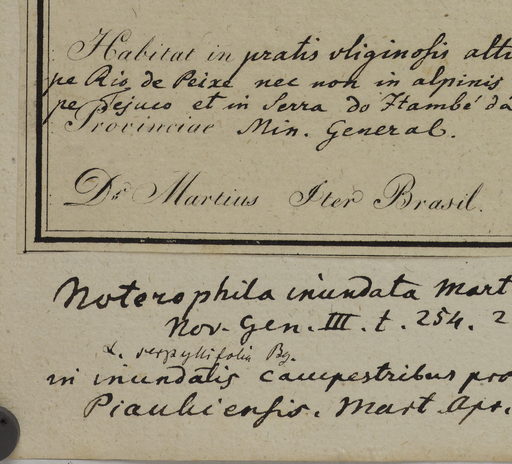 Habitat in pratis vliginosis alti
pe Rio de Peixe nec non in alpinis
pe Tejuco et in Serra do Itambé da
Provinciae Min. General.
Dr. Martius Iter Brasil.
Noterophila inundata Mart
Nov. Gen. III. t. 254. 2
α. serpyllifolia Bg.
in inundatis campestribus pro
Piauhiensis. Mart. Apr.